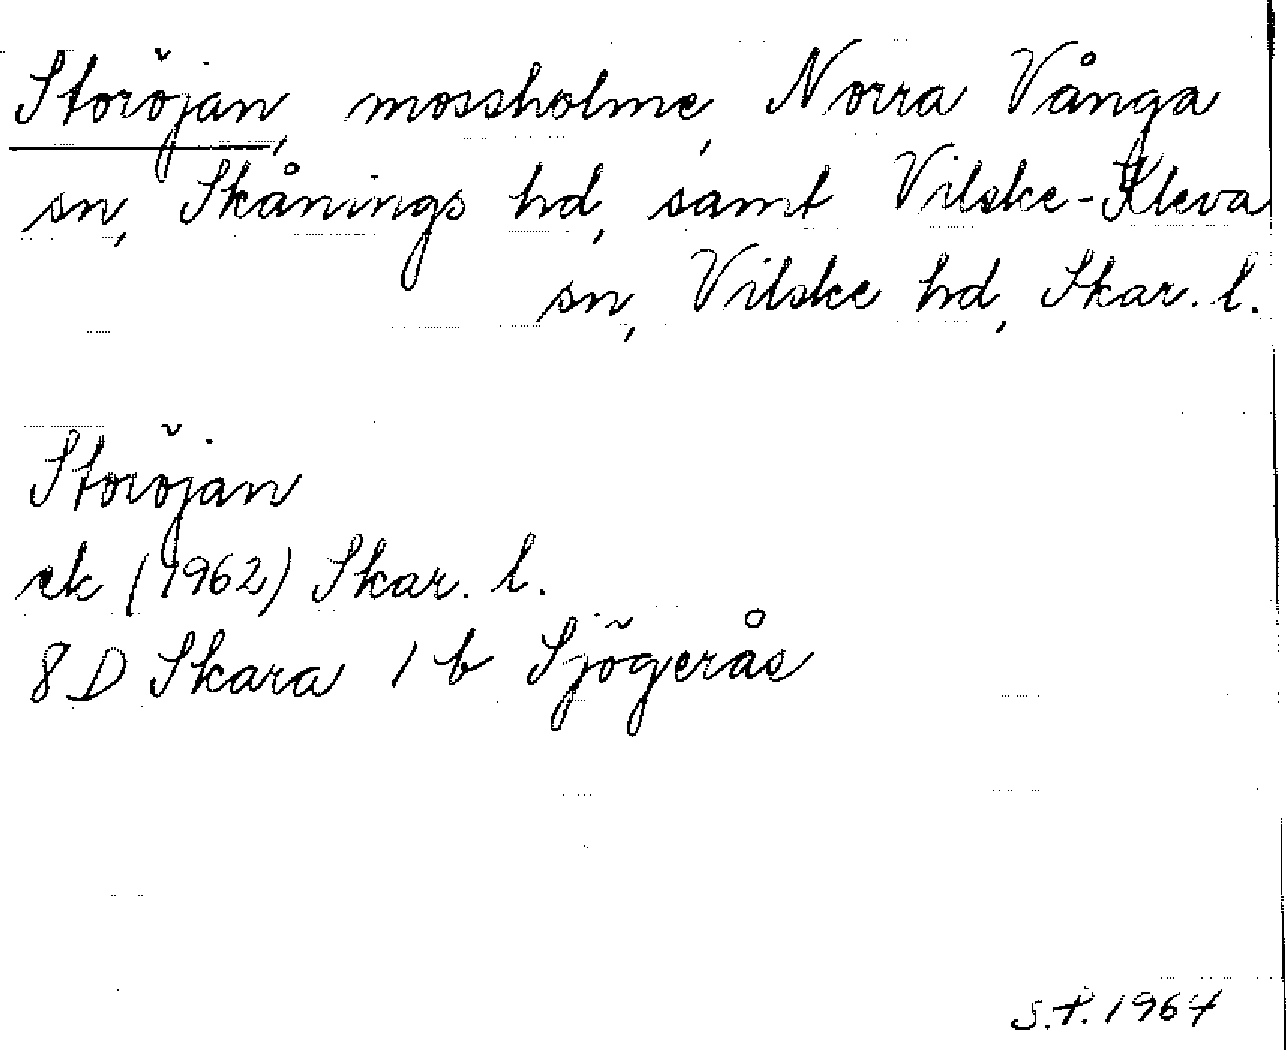 Storöjan, mossholme, Norra Vånga
sn, Skånings hd, samt Vilske-Kleva
sn, Vilske hd, Skar. l.
Storöjan
ek (1962) Skar. l.
8 D Skara 1 b Sjögerås
S.P. 1964